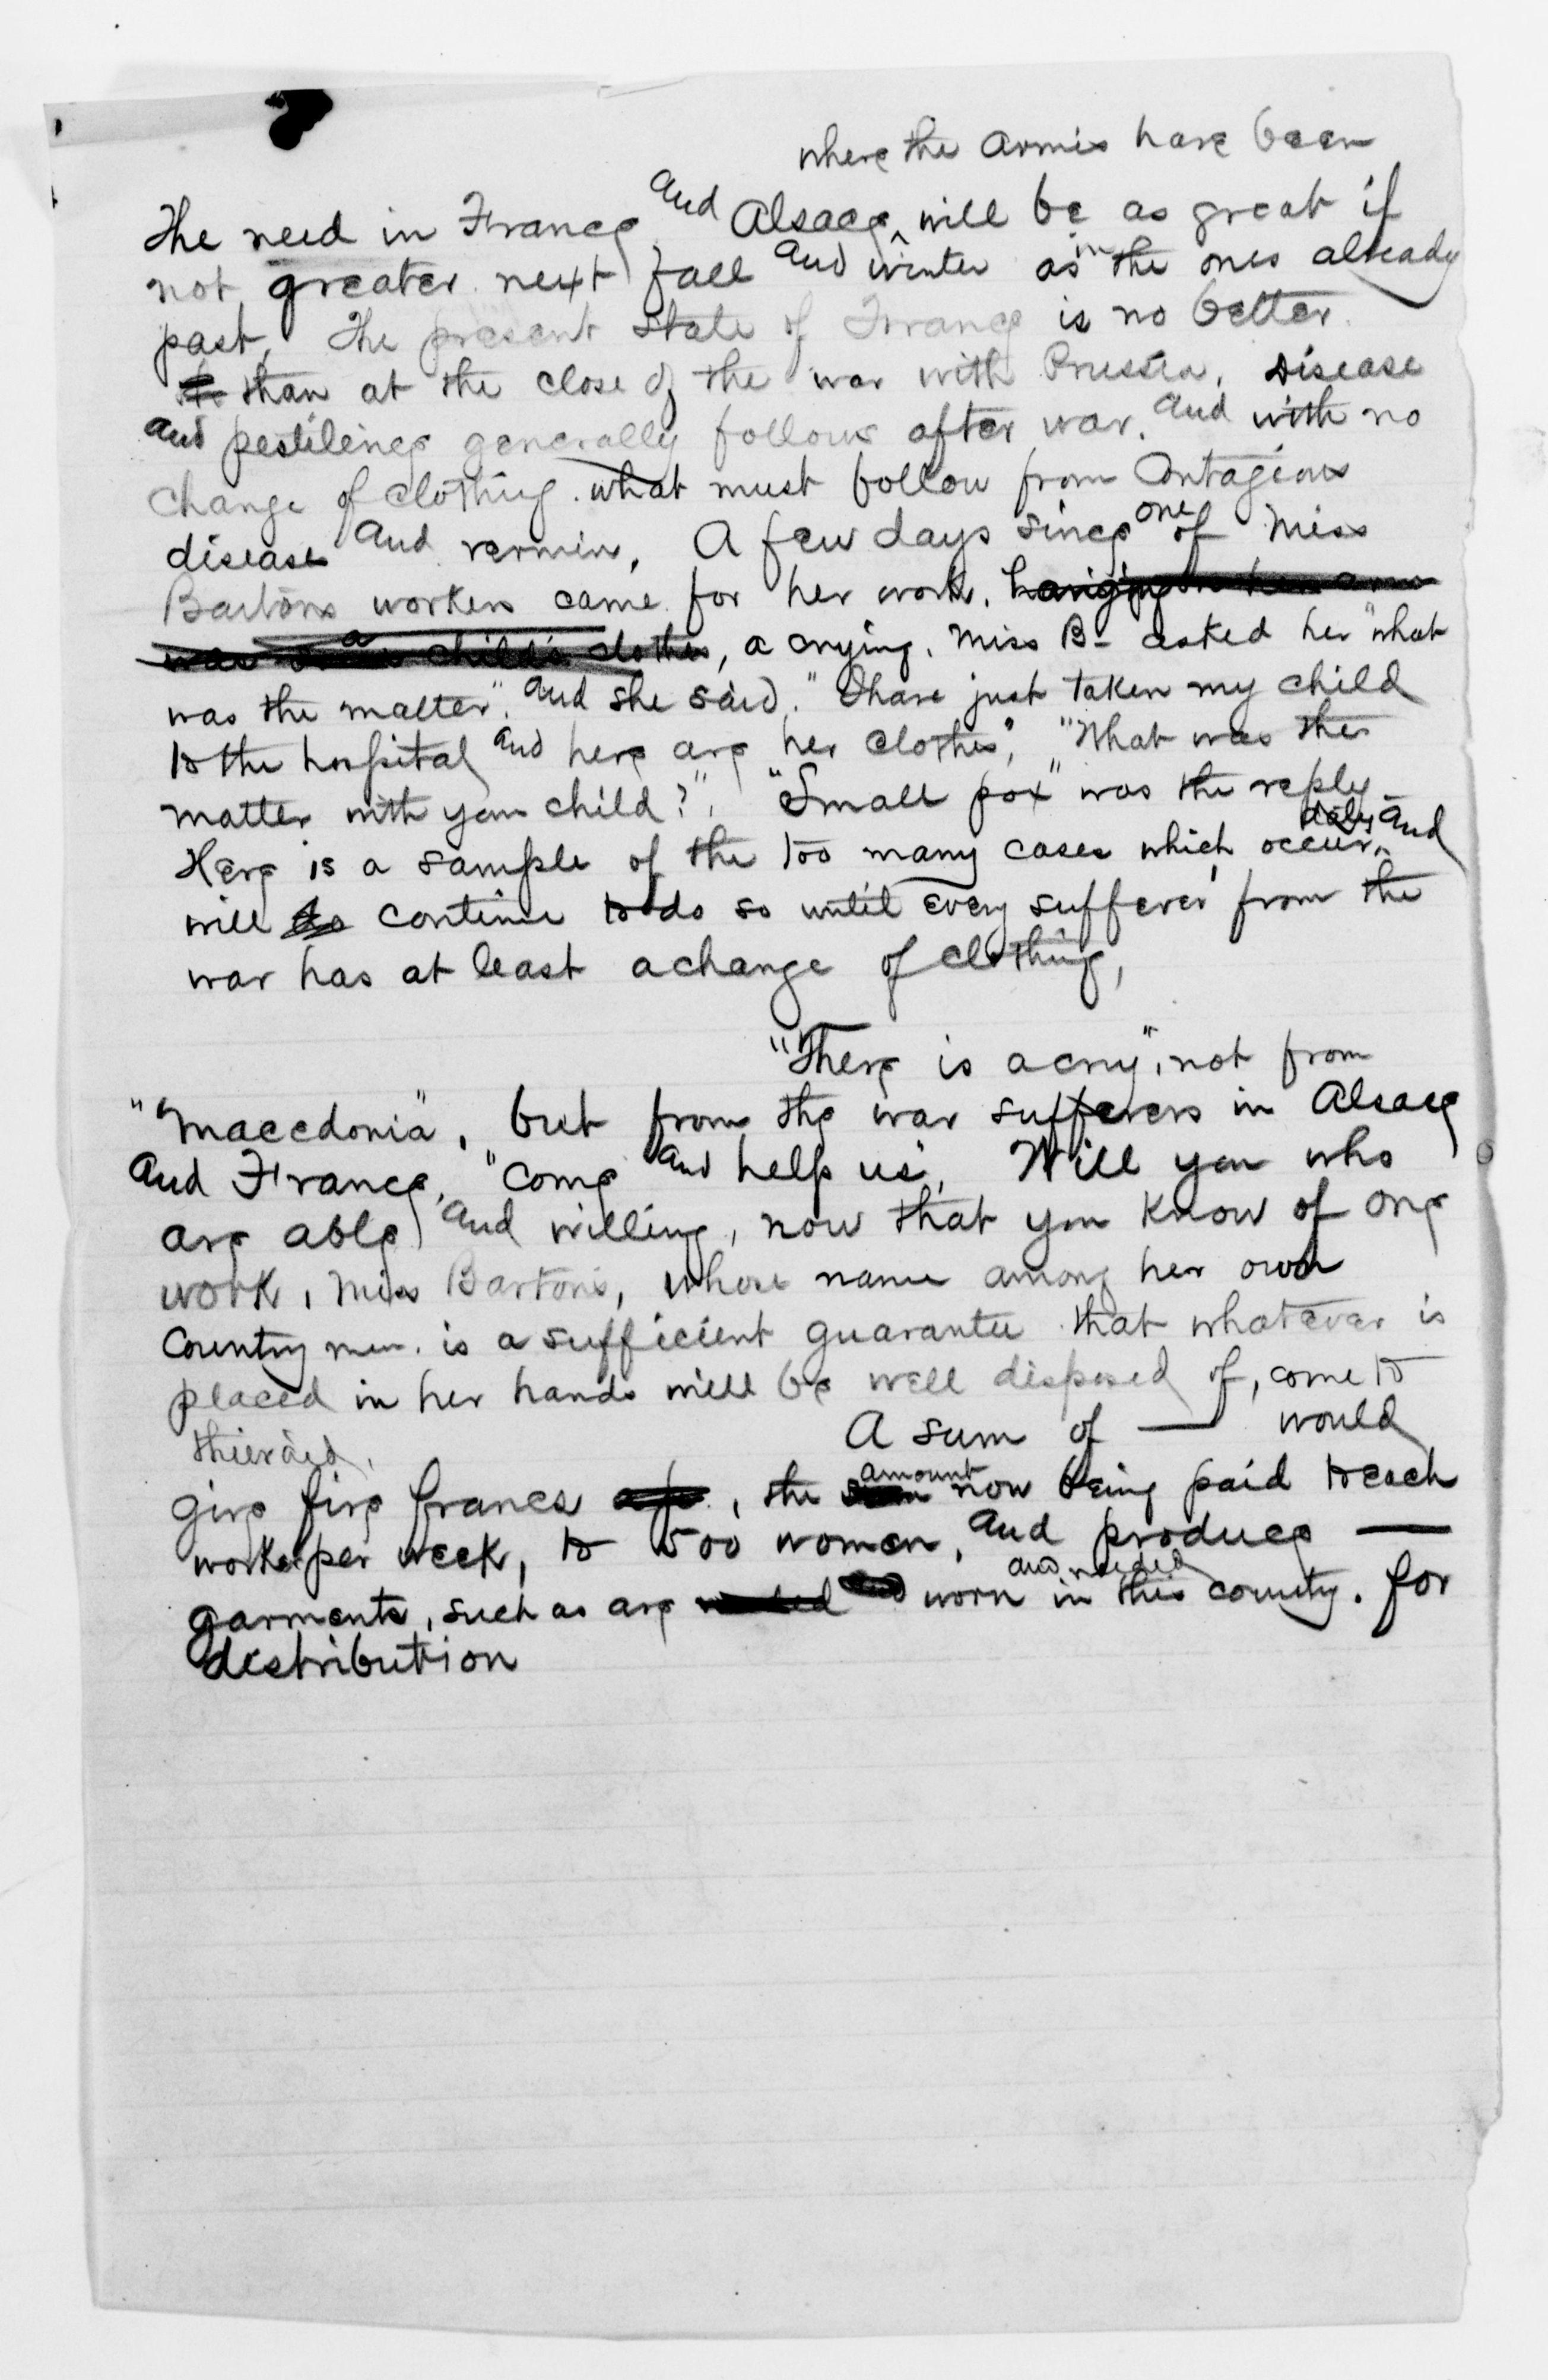 where the armies have been
The need in France and Alsace ^ will be as great if
not greater next fall and winter as in the ones already
past, The present state of France is no better
than at the close of the war with Prussia, Disease
and pestilence generally follow after war. and with no
change of clothing. what must follow from Contagious
diseases and vermin, A few days since one of Miss
Bartons workers came for her work. hanging on her arm
was a child's clothes, a crying. Miss B- asked her "what
was the matter", and she said, "I have just taken my child
to the hospital and here are her clothes", "What was the
matter with your child?", "Small pox" was the reply_
Here is a sample of the too many cases which occur daily, and
will do continue to do so until every sufferer from the
war has at least a change of clothing,
"There is a cry", not from
"Macedonia", but from the war sufferers in Alsace
and France, "come and help us", Will you who
are able and willing, now that you know of one
work, Miss Barton's, whose name among her own
Country men. is a sufficient guarantee that whatever is
placed in her hands will be well disposed of, come to
their aid,
A sum of — would
give five francs, the sum amount now being paid to each
worker per week, to 500 women, and produce —
garments, such as are needed and worn and needed in this country. for
distribution